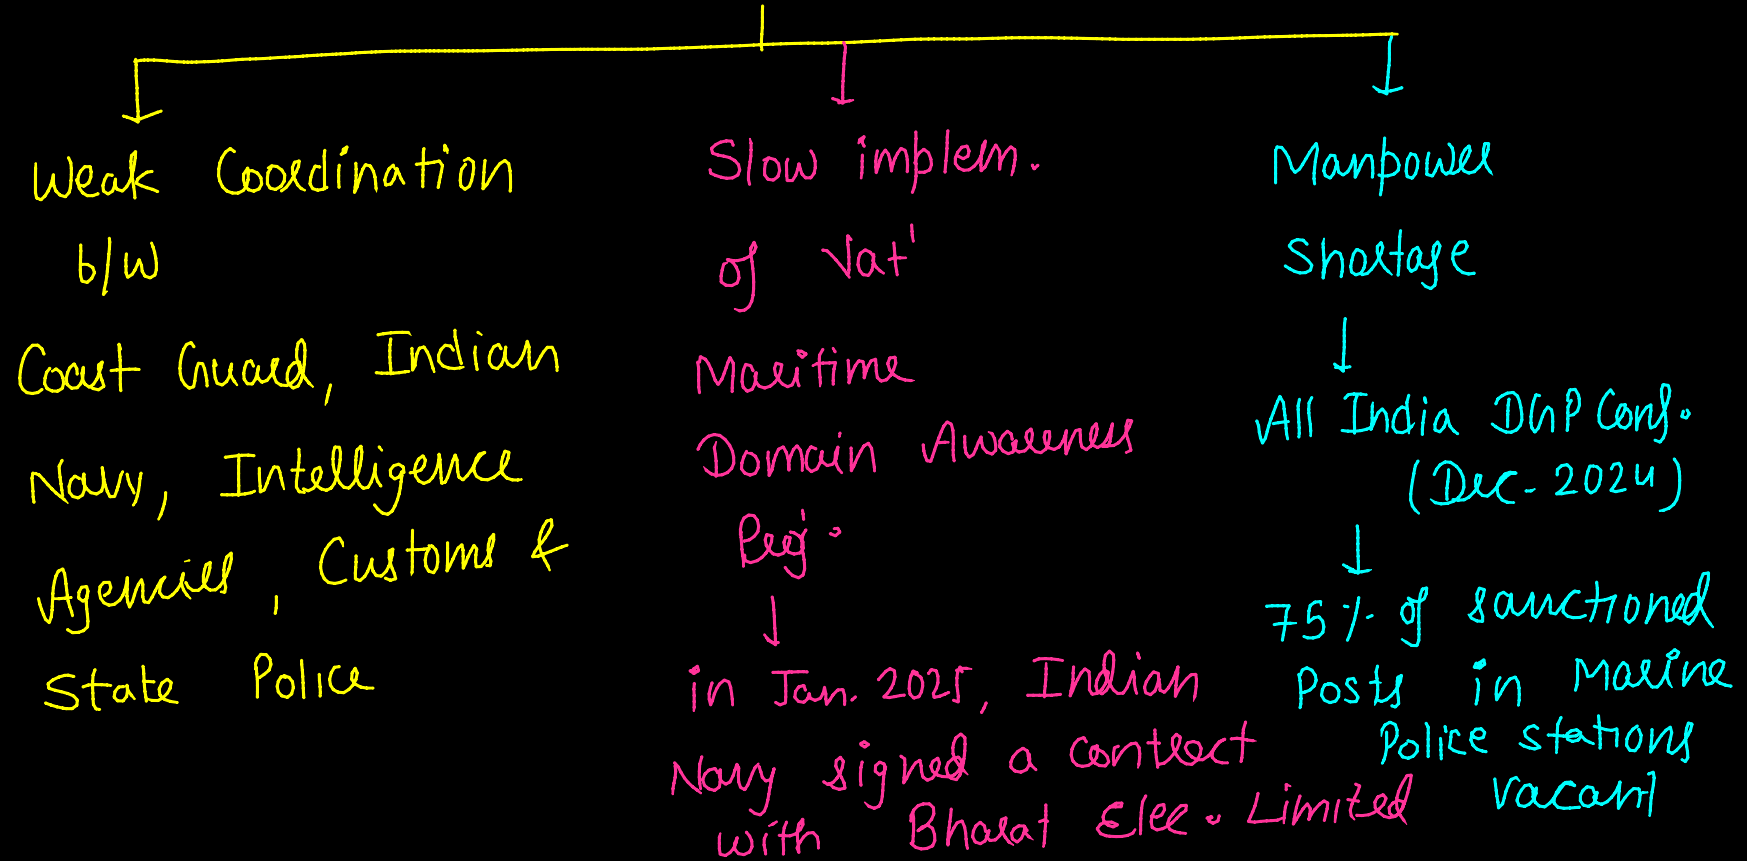 Weak Coordination
b/w
Coast Guard, Indian
Navy, Intelligence
Agencies, Customs &
State Police
Slow implem.
of Nat'
Maritime
Domain Awareness
Proj.
in Jan. 2025, Indian
Navy signed a contract
with Bharat Elec. Limited
Manpower
Shortage
All India DGP Conf.
(Dec. 2024)
75% of sanctioned
Posts in Marine
Police stations
vacant